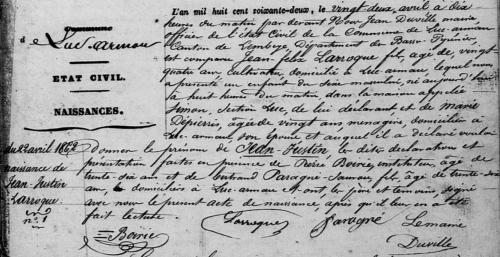 Commune
de Luc-armau
ETAT CIVIL.
NAISSANCES.
du 22 avril 1862
naissance de
Jean Justin
Larroque
n° 1
L'an mil huit cent soixante-deux, le vingt deux avril à dix
heures du matin par devant Nous Jean Duville maire
officier de l'état Civil de la Commune de Luc-armau
Canton de Lembeye, Département des Basses Pyrénées
est comparu Jean-felix Larroque fils, agé de vingt
quatre ans, Cultivateur, domicilié à Luc-armau, lequel nous
a présenté un enfant du sexe masculin, né aujourd'hui
à huit heures du matin dans la maison appelée
section Luc, de lui déclarant et de marie
agée de vingt ans, ménagère, domiciliée à
Luc-armau son épouse et auquel il a déclaré vouloir
Donner le prénom de Jean Justin les dites déclarations et
présentation faites en présence de Pierre Boirie, instituteur, agé de
trente-six ans et de Bertrand fils, agé de trente-six
ans, domiciliés à Luc-armau et ont les père et témoins signé
avec nous le présent acte de naissance, après qu'il leur en a été
fait lecture.
Boirie
Larroque
Lemaire
Duville